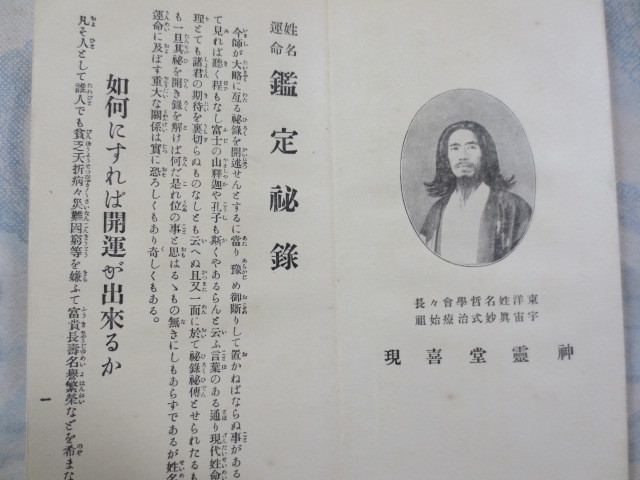 東洋姓名哲學會々長
宇宙眞妙式治療始祖
神靈堂喜現
姓名
運命
鑑定祕錄
今師が大略に亙る祕錄を開述せんとするに當り豫め御斷りして置かねばならぬ事がある
て見れば聽く程もなし富士の山釋迦や孔子も斯くやあるらんと云ふ言葉のある通り現代姓命
理とても諸君の期待を裏切らぬものなしとも云へぬ且又一面に於て祕錄祕傳とせられたるも
も一旦其祕を開き錄を解けば何だ是れ位の事と思はるゝもの無きにしもあらずであるが姓名
運命に及ぼす重大な關係は實に恐ろしくもあり奇しくもある。
如何にすれば開運が出來るか
凡そ人として誰人でも貧乏夭折病々災難困窮等を嫌ふて富貴長壽名譽繁榮などを希まな
一